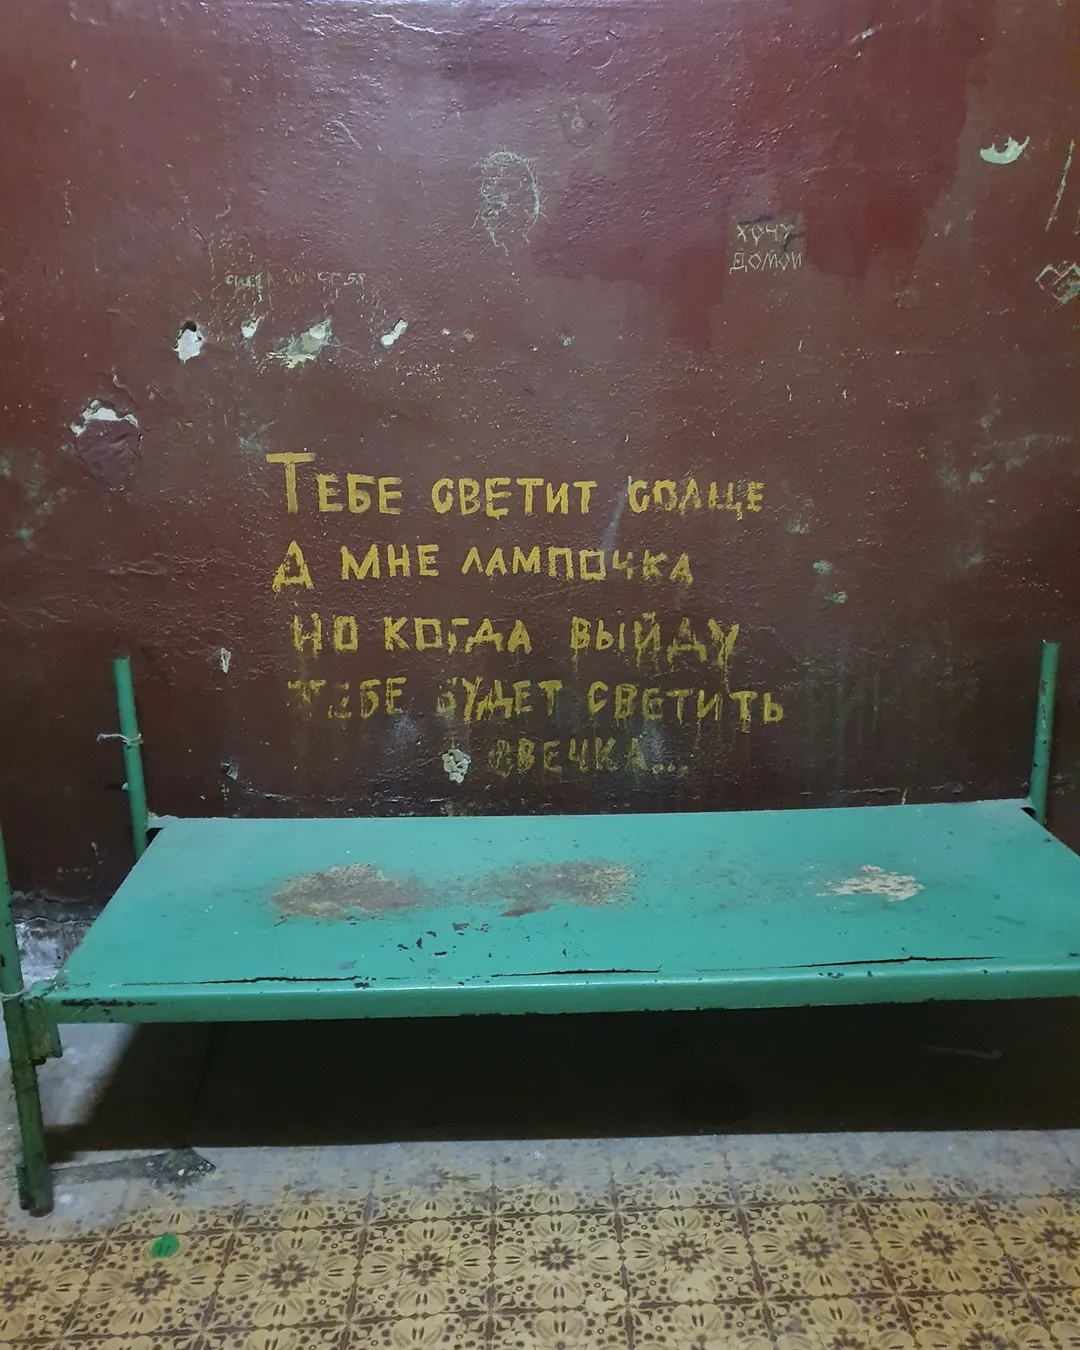 ХОЧУ
ДОМОЙ
ТЕБЕ СВЕТИТ СОЛЦЕ
А МНЕ ЛАМПОЧКА
НО КОГДА ВЫЙДУ
ТЕБЕ БУДЕТ СВЕТИТЬ
СВЕЧКА...